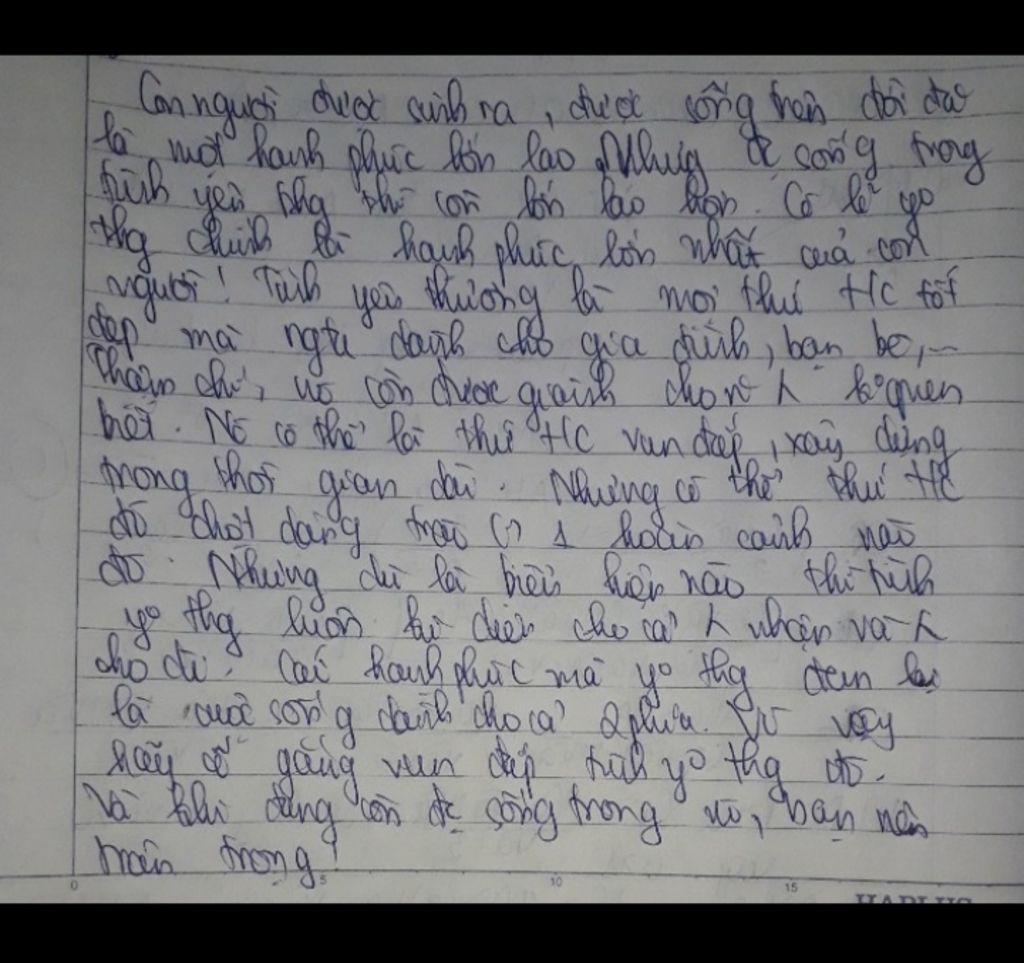 Con người được sinh ra, được sống trên đời đã
là một hạnh phúc lớn lao. Nhưng đc sống trong
tình yêu thg thì còn lớn lao hơn. Có lẽ yo
thg chính là hạnh phúc lớn nhất của con
người! Tình yêu thương là mọi thứ t/c tốt
đẹp mà ngta dành cho gia đình, bạn bè,...
Thậm chí, nó còn được giành cho n~ k quen
biết. Nó có thể là thứ t/c vun đắp, xây dựng
trong thời gian dài. Nhưng có thể thứ t/c
đó chợt dâng trào 1 hoàn cảnh nào
đó. Nhưng dù là biểu hiện nào thì tình
yo thg luôn kì diệu cho cả nhận và
cho đi. Cái hạnh phúc mà yo thg đem lại
là cuộc sống dành cho cả 2 phía. Vì vậy
hãy cố gắng vun đắp tình yo thg đó.
Và khi đang còn đc sống trong nó, bạn nên
trân trọng!
0 5 10 15
HAPLUS